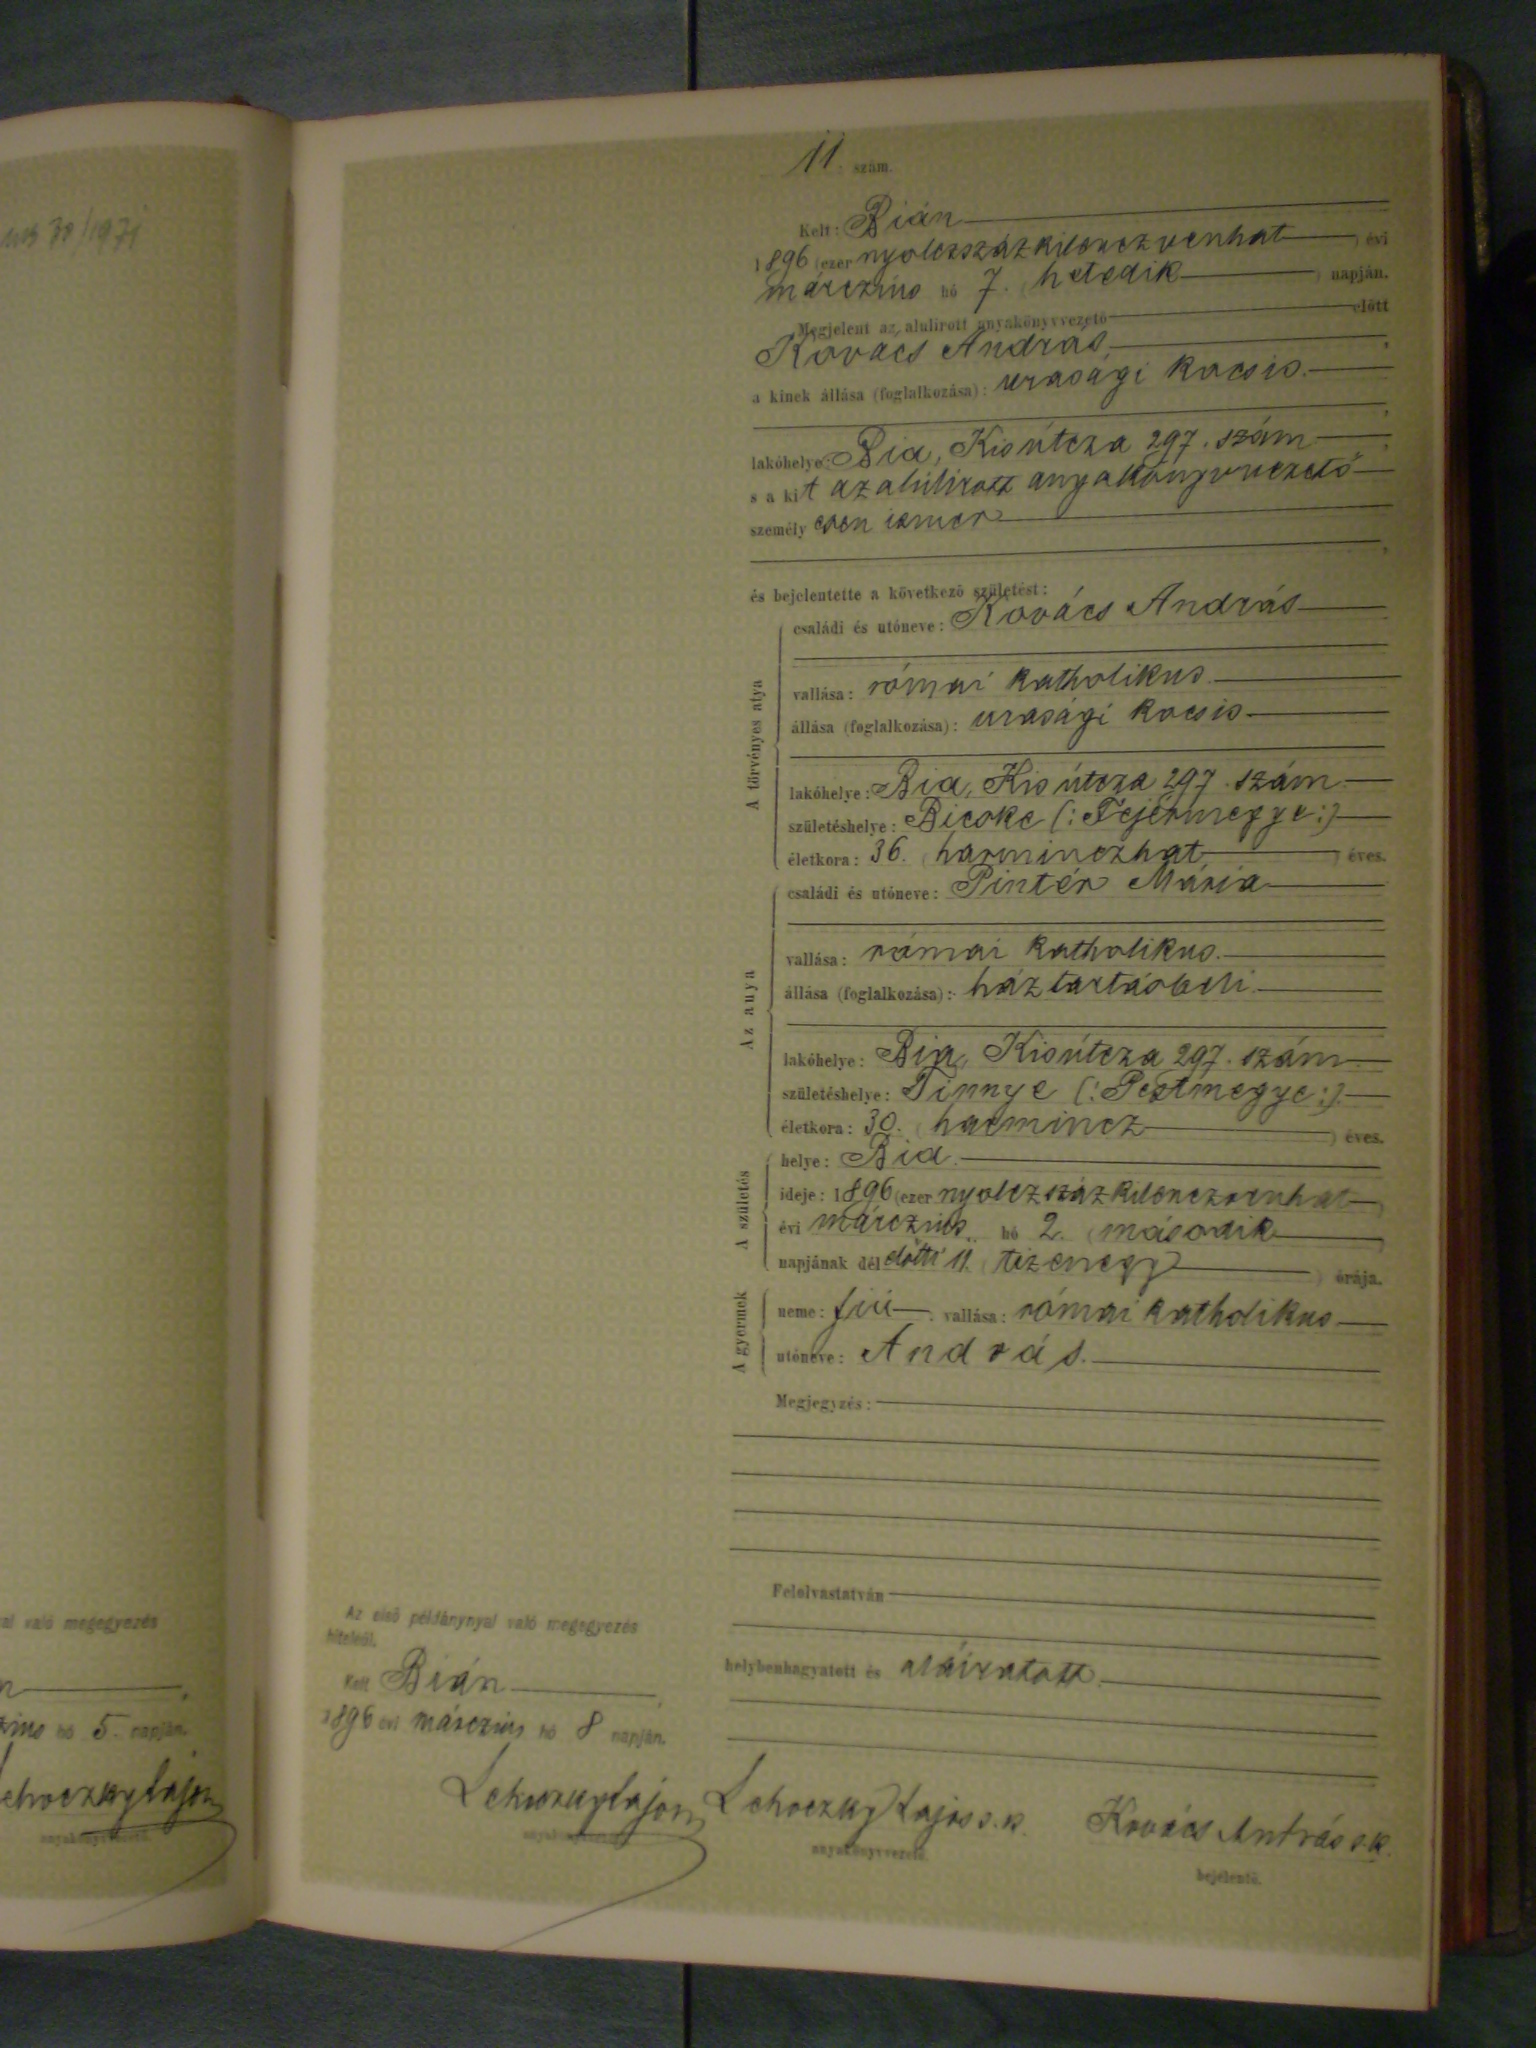 11. szám.
Kelt: Bián
1896 (ezer nyolczszázkilenczvenhat) évi
márczius hó 7. (hetedik) napján.
Megjelent az alulirott anyakönyvvezető előtt
Kovács András,
a kinek állása (foglalkozása): urasági kocsis.
lakóhelye: Bia, Kisútcza 297. szám
s a kit az alúlirott anyakönyvvezető
személyesen ismer
és bejelentette a következő születést:
A törvényes atya
családi és utóneve: Kovács András
vallása: római katholikus.
állása (foglalkozása): urasági kocsis
lakóhelye: Bia, Kisútcza 297. szám.
születéshelye: Bicske (: Fejérmegye :)
életkora: 36. (harminczhat) éves.
Az anya
családi és utóneve: Pintér Mária
vallása: római katholikus.
állása (foglalkozása): háztartásbeli.
lakóhelye: Bia, Kisútcza 297. szám
születéshelye: Tinnye (: Pestmegye :).
életkora: 30. (harmincz) éves.
A születés
helye: Bia.
ideje: 1896 (ezer nyolczszázkilenczvenhat)
évi márczius hó 2. (második)
napjának délelőtti 11. (tizenegy) órája.
A gyermek
neme: fiú. vallása: római katholikus
utóneve: András.
Megjegyzés:
Felolvastatván
helybenhagyatott és aláiratott.
Az első példánynyal való megegyezés
hiteléül.
Kelt Bián,
1896 évi márczius hó 8 napján.
Lehoczky Lajos
anyakönyvvezető.
Lehoczky Lajos s. k.
anyakönyvvezető.
Kovács András s. k.
bejelentő.
/1971
való megegyezés
hó 5. napján.
Lehoczky Lajos
anyakönyvvezető.